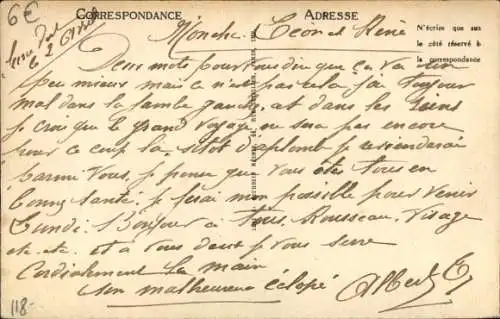 6€
CORRESPONDANCE
ADRESSE
Léon et René
N'écrire que sur
le côté réservé à
la correspondance
Deux mots pour vous dire que ça va un
peu mieux mais ce n'est pas cela j'ai toujour
mal dans la jambe gauche, et dans les reins
je crois que le grand voyage ne sera pas encore
pour ce coup là. sitot d'aplomb je reviendrai
parmi vous, je pense que vous êtes tous en
bonne santé. je ferai mon possible pour venir
Lundi. Bonjour à tous, Rousseau, visage
etc. etc. et à vous deux je vous serre
Cordialement la main
son malheureux éclopé
Albert
118-